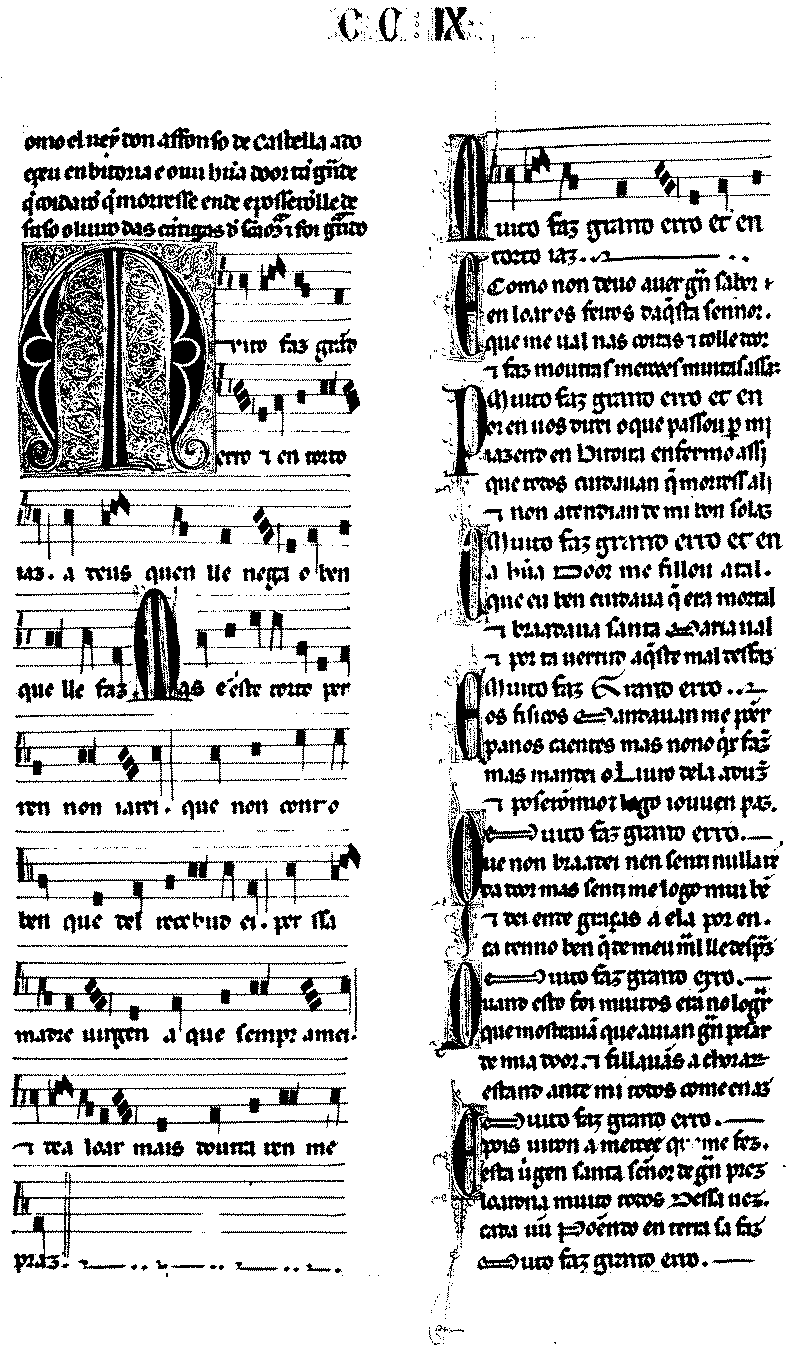 CCIX
omo el rey don affonso de Castella ado
eçeu en bitoria e ouu hũa door tã grãde
q̃ coidarõ q̃ morresse ende e posserõlle de
suso o liuro das cantigas d sc̃a mª ⁊ foi guarido
Muito faz grãd
erro ⁊ en torto
iaz. a deus quen lle nega o ben
que lle faz. Mas este torto per
ren non iarei. que non cont o
ben que del recebud ei. per ssa
madre uirgen a que sempr amei.
⁊ dea loar mais doutra ren me
praz.
Muito faz grand erro et en
torto iaz.
Como non deuo auer gñ sabor
en loar os feitos daq̃sta sennor.
que me ual nas coitas ⁊ tolle door
⁊ faz moutras merçees muitas assaz
Muito faz grand erro et en
Por en uos direi o que passou p mi
iazend en Bitoira enfermo assi
que todos cuidauan q̃ morress ali
⁊ non atendian de mi bon solaz
Muito faz grand erro et en
Ca hũa door me fillou atal.
que eu ben cuidaua q̃ era mortal
⁊ braadaua santa Maria ual
⁊ por ta uertud aq̃ste mal desfaz
Muito faz Grand erro
Os fisicos Mandauan me põer
panos caentes mas nono q̃x faz̃
mas mandei o Liuro dela aduz̃
⁊ poserõmio ⁊ logo iouuen paz.
Muito faz grand erro.
Que non braadei nen senti nulla rẽ
da door mas senti me logo mui bẽ
⁊ dei ende graças a ela por en.
ca tenno ben q̃ de meu mal lle despraz
Muito faz grand erro.
Quando esto foi muitos eran no logar
que mostrauã que auian gñ pesar
de mia door. ⁊ fillauãs a chorar
estand ante mi todos come en az
Muito faz grand erro.
E pois uiron a merçee que me fez.
esta ũgen santa sẽnor de gñ prez
loarona muito todos Dessa uez.
cada ũu Põendo en terra sa faz
Muito faz grand erro.